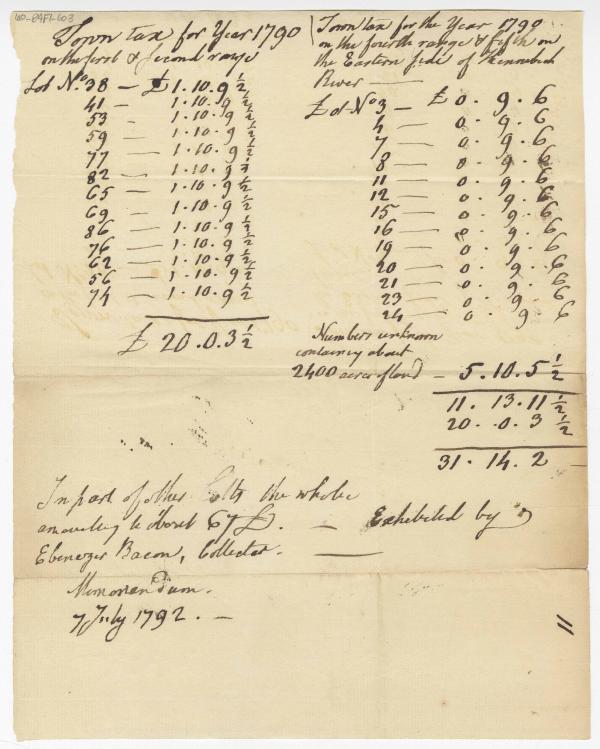 Town tax for Year 1790
on the first & Second range
Lot No. 38 — £1.10.9 1/2
41 — 1.10.9 1/2
53 — 1.10.9 1/2
59 — 1.10.9 1/2
77 — 1.10.9 1/2
82 — 1.10.9 1/2
65 — 1.10.9 1/2
69 — 1.10.9 1/2
86 — 1.10.9 1/2
76 — 1.10.9 1/2
62 — 1.10.9 1/2
56 — 1.10.9 1/2
74 — 1.10.9 1/2
£ 20.0.3 1/2
Town tax for the Year 1790
on the fourth range & fifth on
the Eastern side of Kennebeck
River —
Lot No 3 — £ 0.9.6
4 — 0.9.6
7 — 0.9.6
8 — 0.9.6
11 — 0.9.6
12 — 0.9.6
15 — 0.9.6
16 — 0.9.6
19 — 0.9.6
20 — 0.9.6
21 — 0.9.6
23 — 0.9.6
24 — 0.9.6
Numbers unknown
containing about
2400 acres of land — 5.10.5 1/2
11.13.11 1/2
20.0.3 1/2
31.14.2 —
In part of other the whole
amounting to about 67£. — Exhibited by
Ebenezer Bacon, Collector. —
Memorandum.
7 July 1792. —